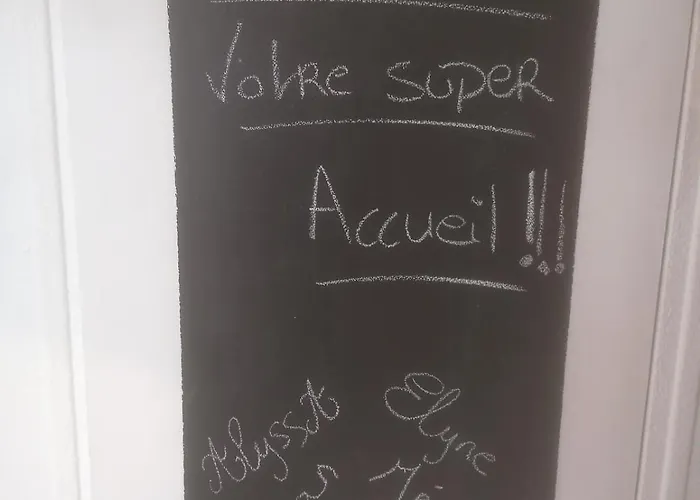 Votre super
Accueil !!!
Alyssa Elyne